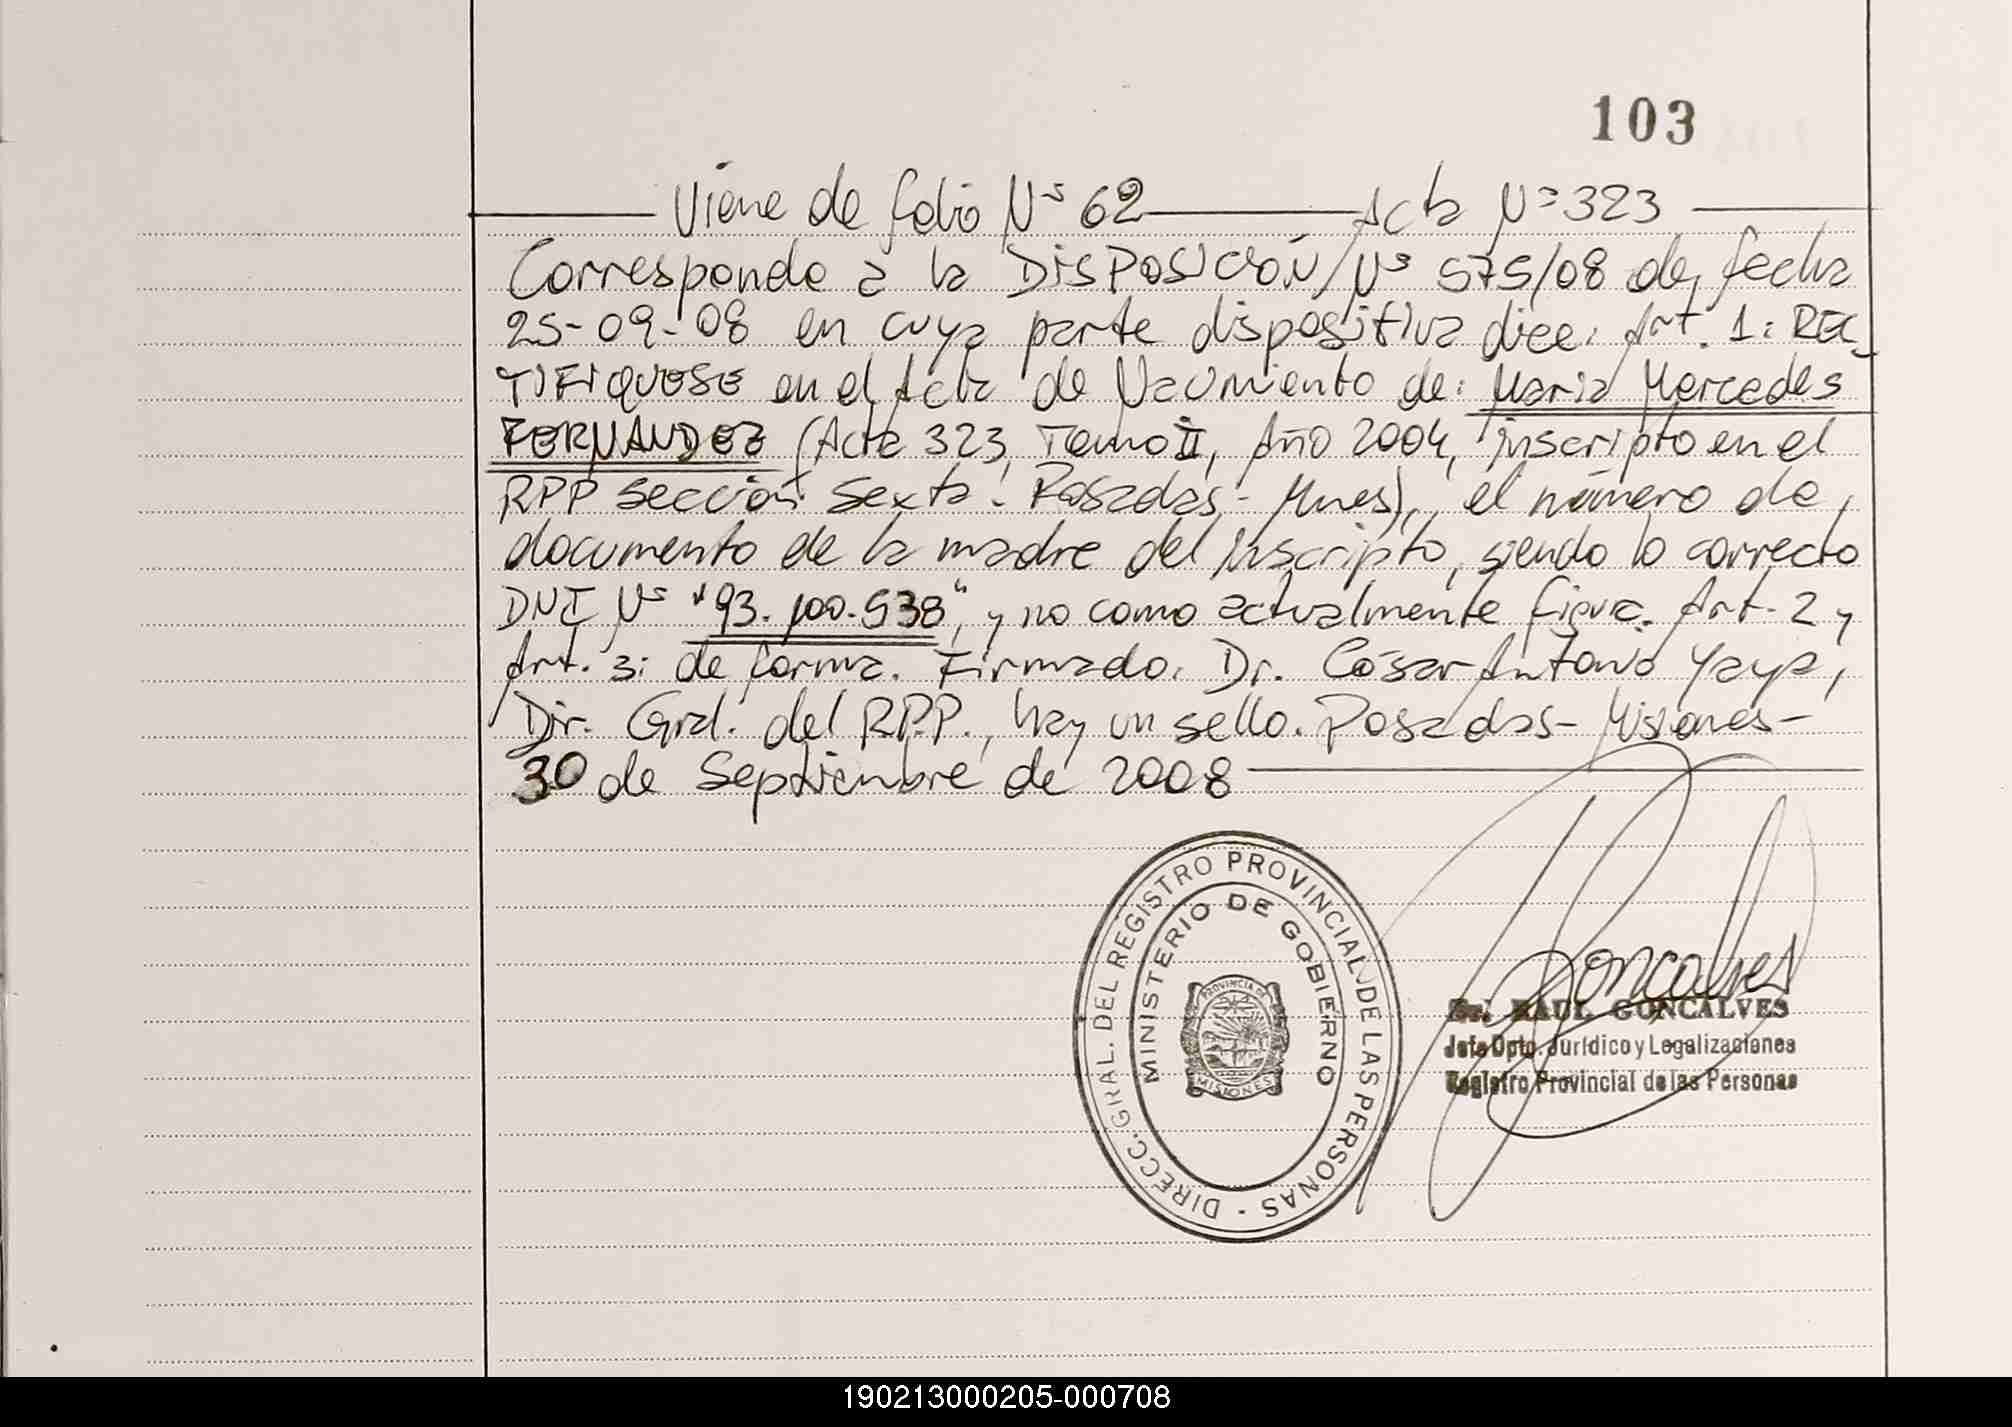 103
Viene de folio Nº 62 Acta Nº 323
Corresponde a la DISPOSICIÓN Nº 575/08 de fecha
25-09-08 en cuya parte dispositiva dice: Art. 1: REC
TIFIQUESE en el Acta de Nacimiento de: Maria Mercedes
FERNANDEZ (Acta 323, Tomo II, Año 2004, inscripto en el
RPP sección Sexta - Posadas - Mnes), el número de
documento de la madre del inscripto, siendo lo correcto
DNI Nº "93.100.538", y no como actualmente figura. Art. 2 y
Art. 3: de forma. Firmado. Dr. César Antonio Yaya,
Dir. Gral. del RPP., hay un sello. Posadas - Misiones -
30 de Septiembre de 2008
DIRECC. GRAL. DEL REGISTRO PROVINCIAL DE LAS PERSONAS -
MINISTERIO DE GOBIERNO
PROVINCIA DE
MISIONES
Goncalves
Dr. RAUL GONCALVES
Jefe Dpto. Jurídico y Legalizaciones
Registro Provincial de las Personas
190213000205-000708